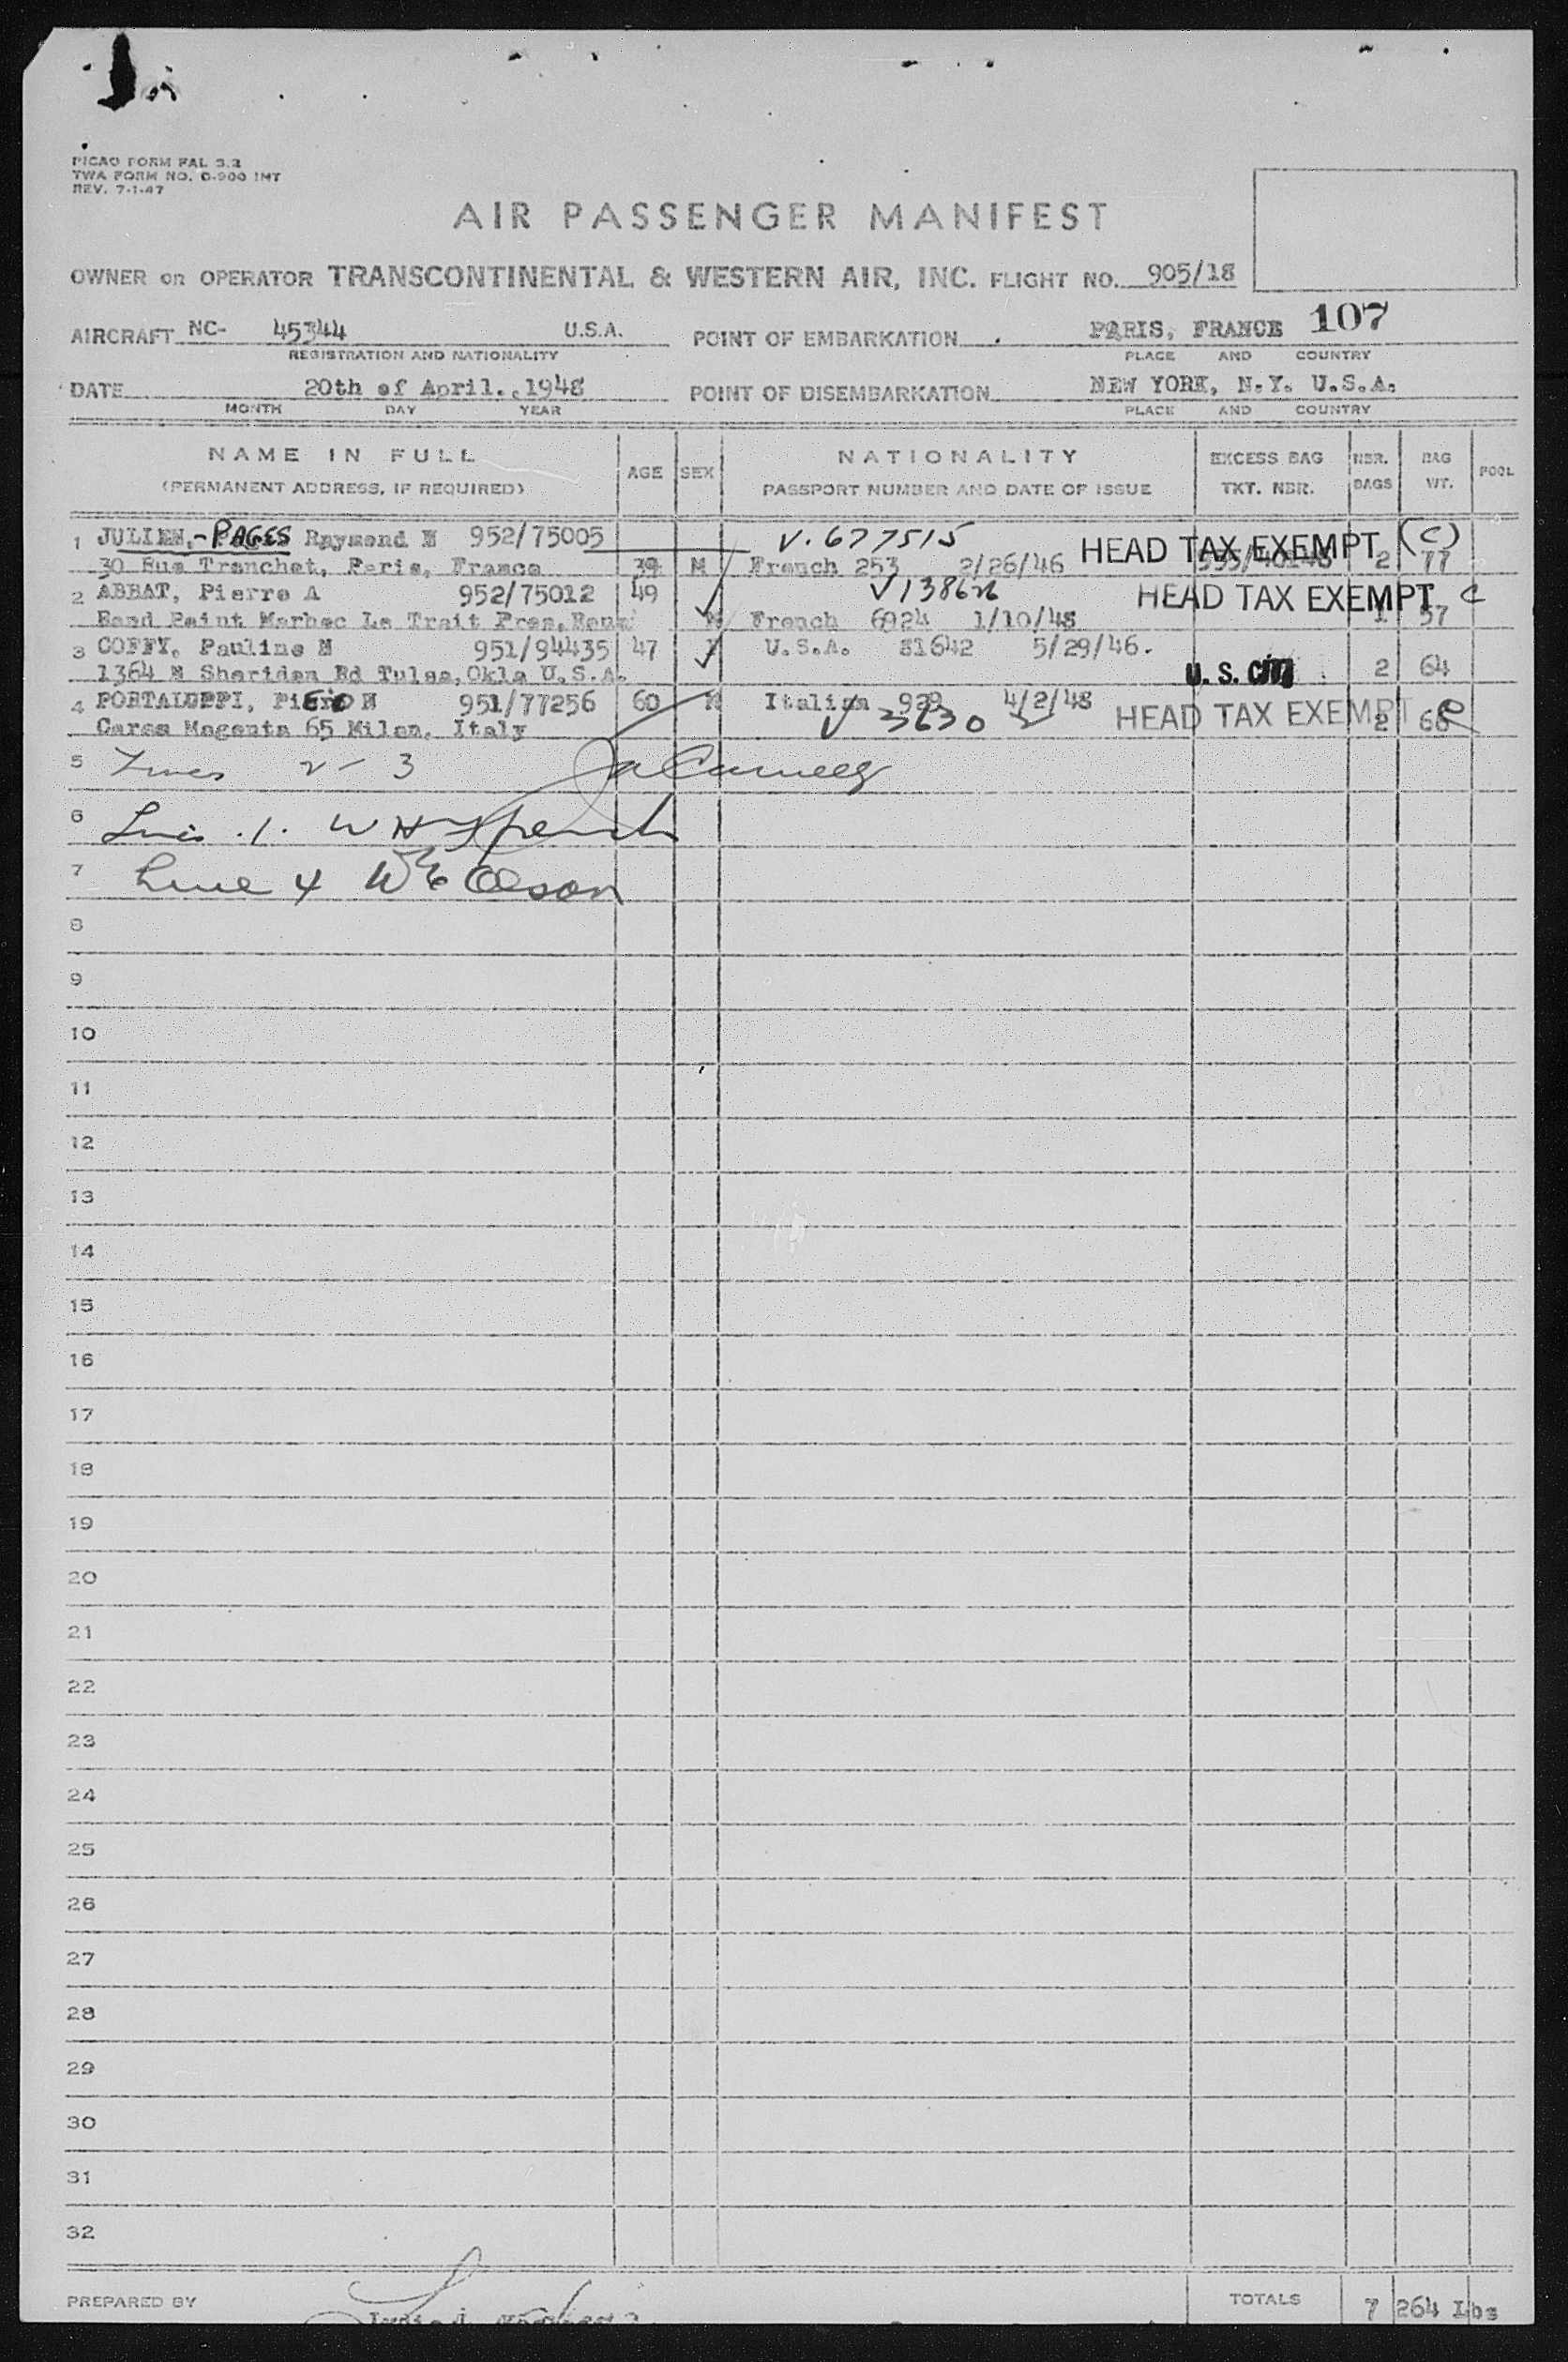 PICAO FORM FAL 3.2
TWA FORM NO. O-900 INT
REV. 7-1-47
AIR PASSENGER MANIFEST
OWNER OR OPERATOR TRANSCONTINENTAL & WESTERN AIR, INC. FLIGHT NO. 905/18
AIRCRAFT NC- 45344 U.S.A. POINT OF EMBARKATION PARIS, FRANCE 107
REGISTRATION AND NATIONALITY PLACE AND COUNTRY
DATE 20th of April., 1948 POINT OF DISEMBARKATION NEW YORK, N.Y. U.S.A.
MONTH DAY YEAR PLACE AND COUNTRY
NAME IN FULL AGE SEX NATIONALITY EXCESS BAG NBR. BAG POOL
(PERMANENT ADDRESS, IF REQUIRED) PASSPORT NUMBER AND DATE OF ISSUE TKT. NBR. BAGS WT.
1 JULIEN,-PAGES Raymond M 952/75005 V. 677515 HEAD TAX EXEMPT (C)
30 Rue Tronchet, Paris, France 39 M French 253 2/26/46 2 77
2 ABBAT, Pierre A 952/75012 49 HEAD TAX EXEMPT C
Marbec Le Trait M French 6924 1/10/48 1 57
3 COFFY, Pauline M 951/94435 47 U.S.A. 81642 5/29/46.
1364 N Sheridan Rd Tulsa, Okla U.S.A. U. S. CIT 2 64
4 PORTALUPPI, PiERO M 951/77256 60 M Italian 928 4/2/48
Magenta 65 Milan, Italy V 3630 HEAD TAX EXEMPT 2 66
5 Lines 2-3
6 1. W H
7 Line 4 Olson
8
9
10
11
12
13
14
15
16
17
18
19
20
21
22
23
24
25
26
27
28
29
30
31
32
PREPARED BY TOTALS 7 264 Lbs